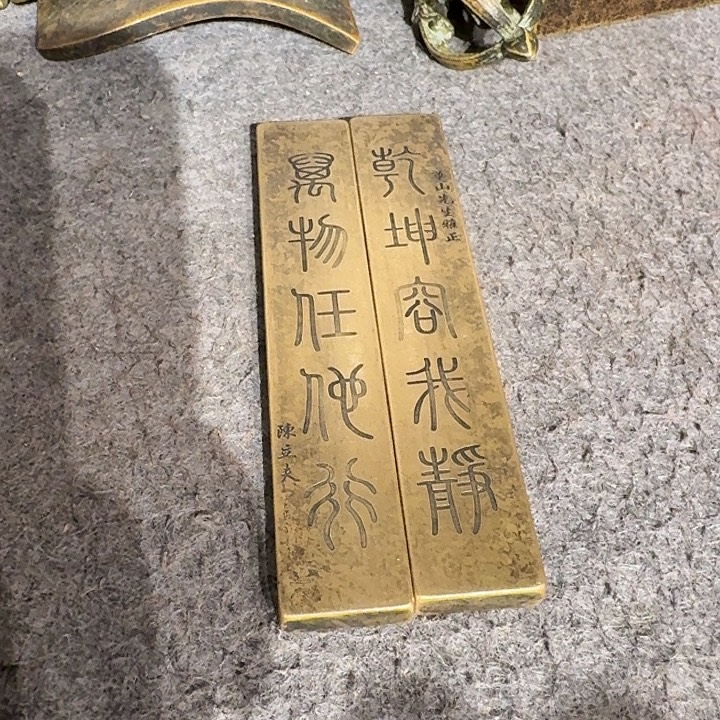 乾坤容我靜
山先生雅正
萬物任他行
陳立夫